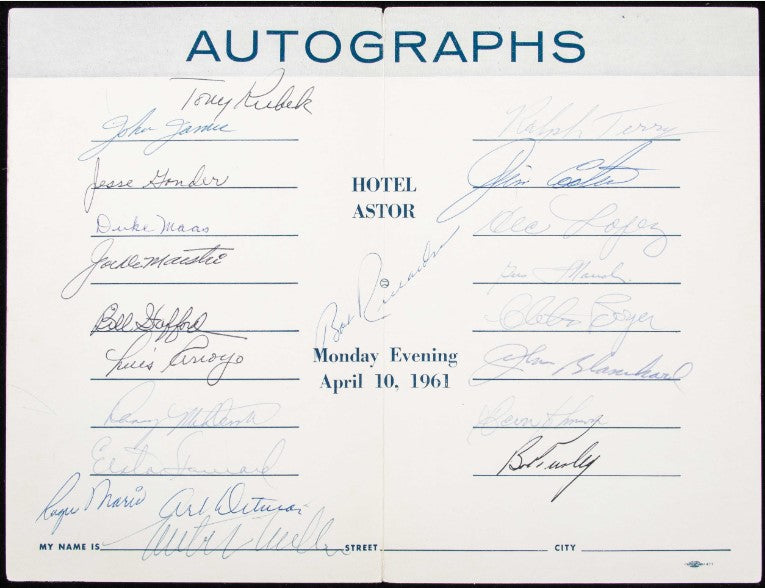 AUTOGRAPHS
Tony Kubek
John James
Jesse Gonder
Duke Maas
Joe DiMaggio
Bill Stafford
Luis Arroyo
Danny
Elston Howard
Roger Maris Art Ditmar
HOTEL
ASTOR
Bob
Monday Evening
April 10, 1961
Ralph Terry
Jim Coates
Hec Lopez
Cletis Boyer
John Blanchard
Bob Turley
MY NAME IS STREET CITY